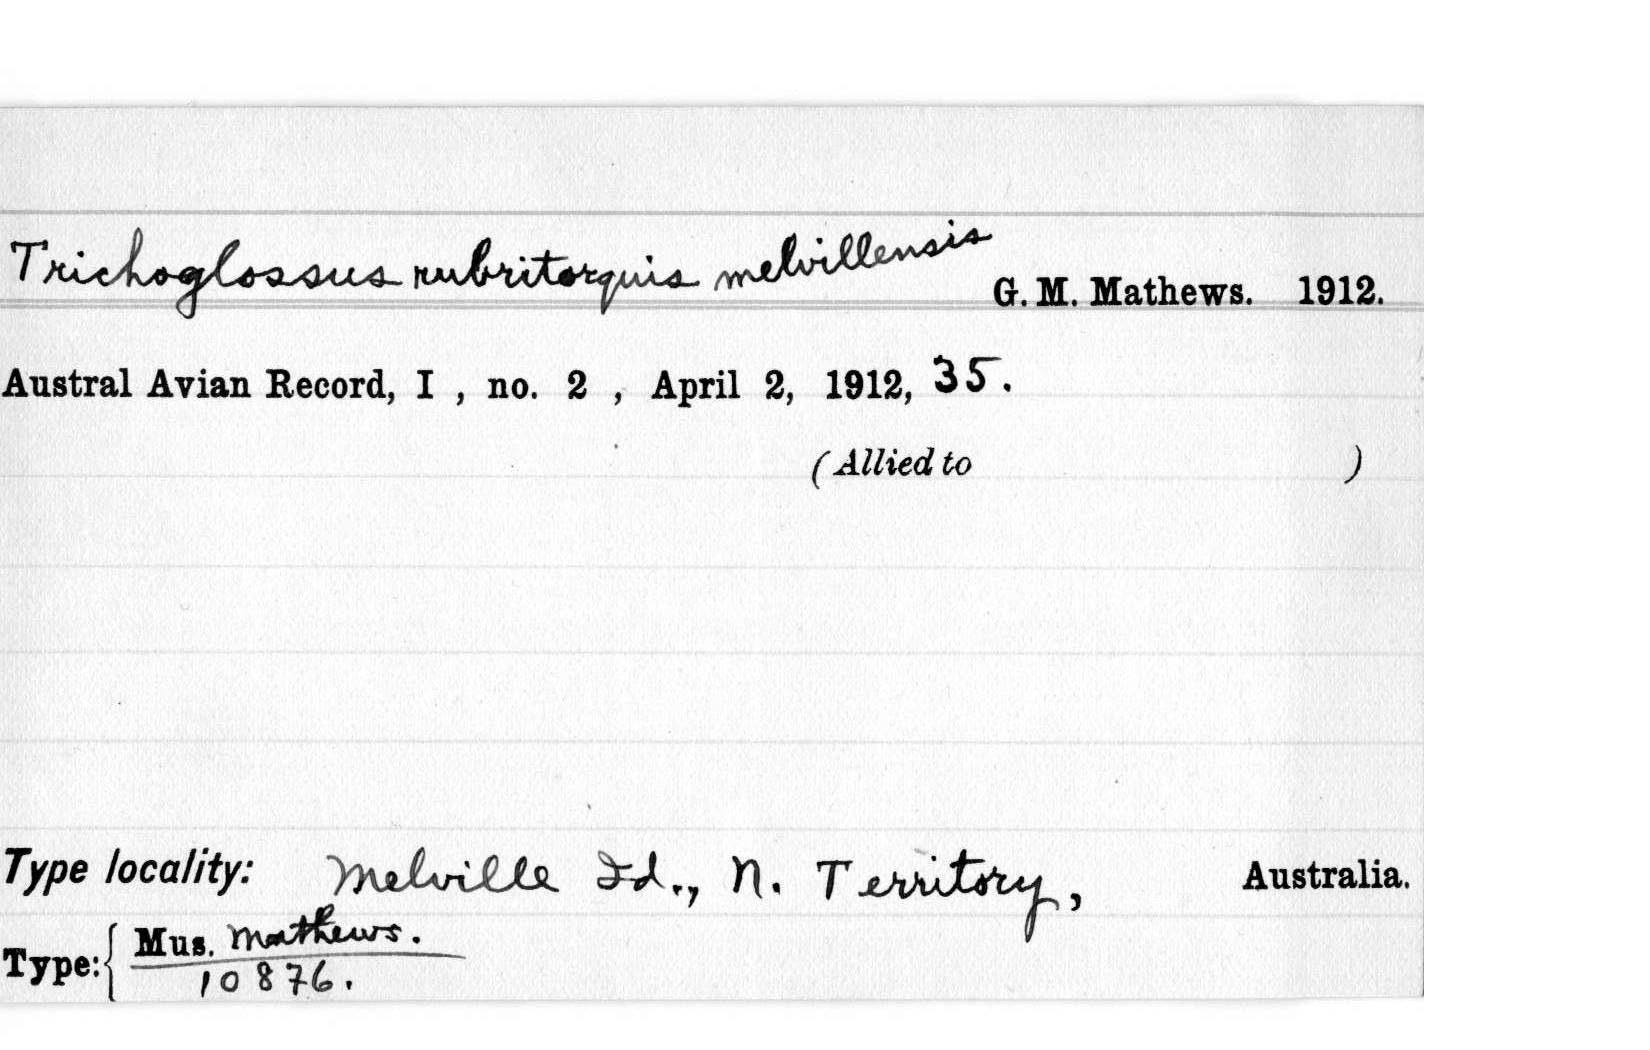 Trichoglossus rubritorquis melvillensis G. M. Mathews. 1912.
Austral Avian Record, I , no. 2 , April 2, 1912, 35.
(Allied to )
Type locality: Melville Id., N. Territory, Australia.
Type: { Mus. Mathews.
10876.